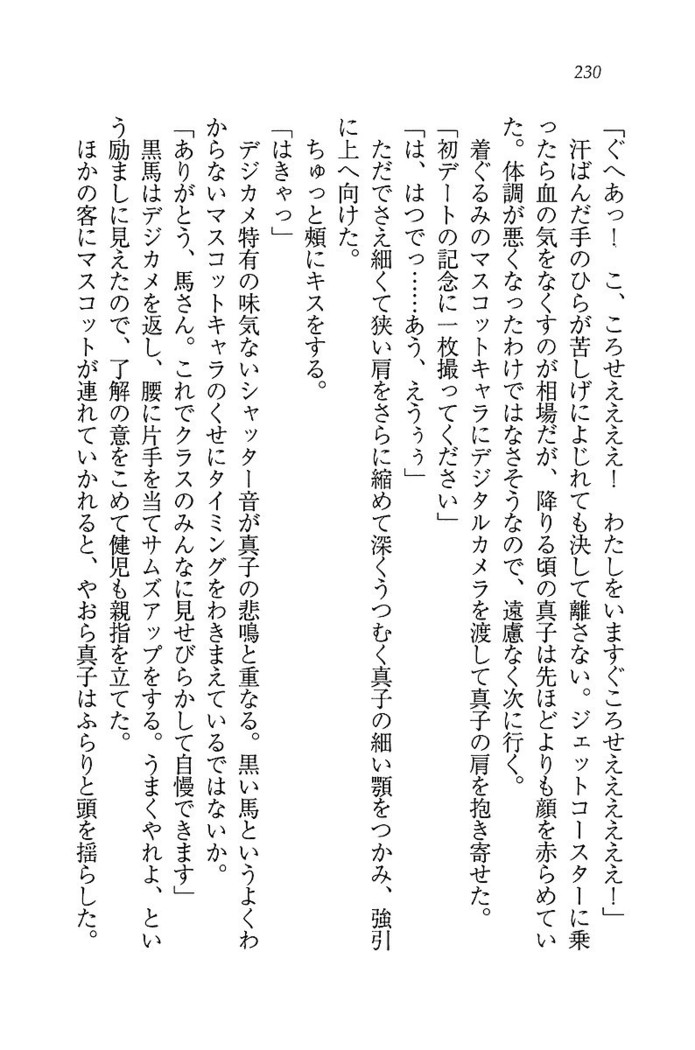 230
「ぐへあっ！　こ、ころせえええ！　わたしをいますぐころせえええええ！」
　汗ばんだ手のひらが苦しげによじれても決して離さない。ジェットコースターに乗
ったら血の気をなくすのが相場だが、降りる頃の真子は先ほどよりも顔を赤らめてい
た。体調が悪くなったわけではなさそうなので、遠慮なく次に行く。
　着ぐるみのマスコットキャラにデジタルカメラを渡して真子の肩を抱き寄せた。
「初デートの記念に一枚撮ってください」
「は、はつでっ……あう、えうぅぅ」
　ただでさえ細くて狭い肩をさらに縮めて深くうつむく真子の細い顎をつかみ、強引
に上へ向けた。
　ちゅっと頰にキスをする。
「はきゃっ」
　デジカメ特有の味気ないシャッター音が真子の悲鳴と重なる。黒い馬というよくわ
からないマスコットキャラのくせにタイミングをわきまえているではないか。
「ありがとう、馬さん。これでクラスのみんなに見せびらかして自慢できます」
　黒馬はデジカメを返し、腰に片手を当てサムズアップをする。うまくやれよ、とい
う励ましに見えたので、了解の意をこめて健児も親指を立てた。
　ほかの客にマスコットが連れていかれると、やおら真子はふらりと頭を揺らした。